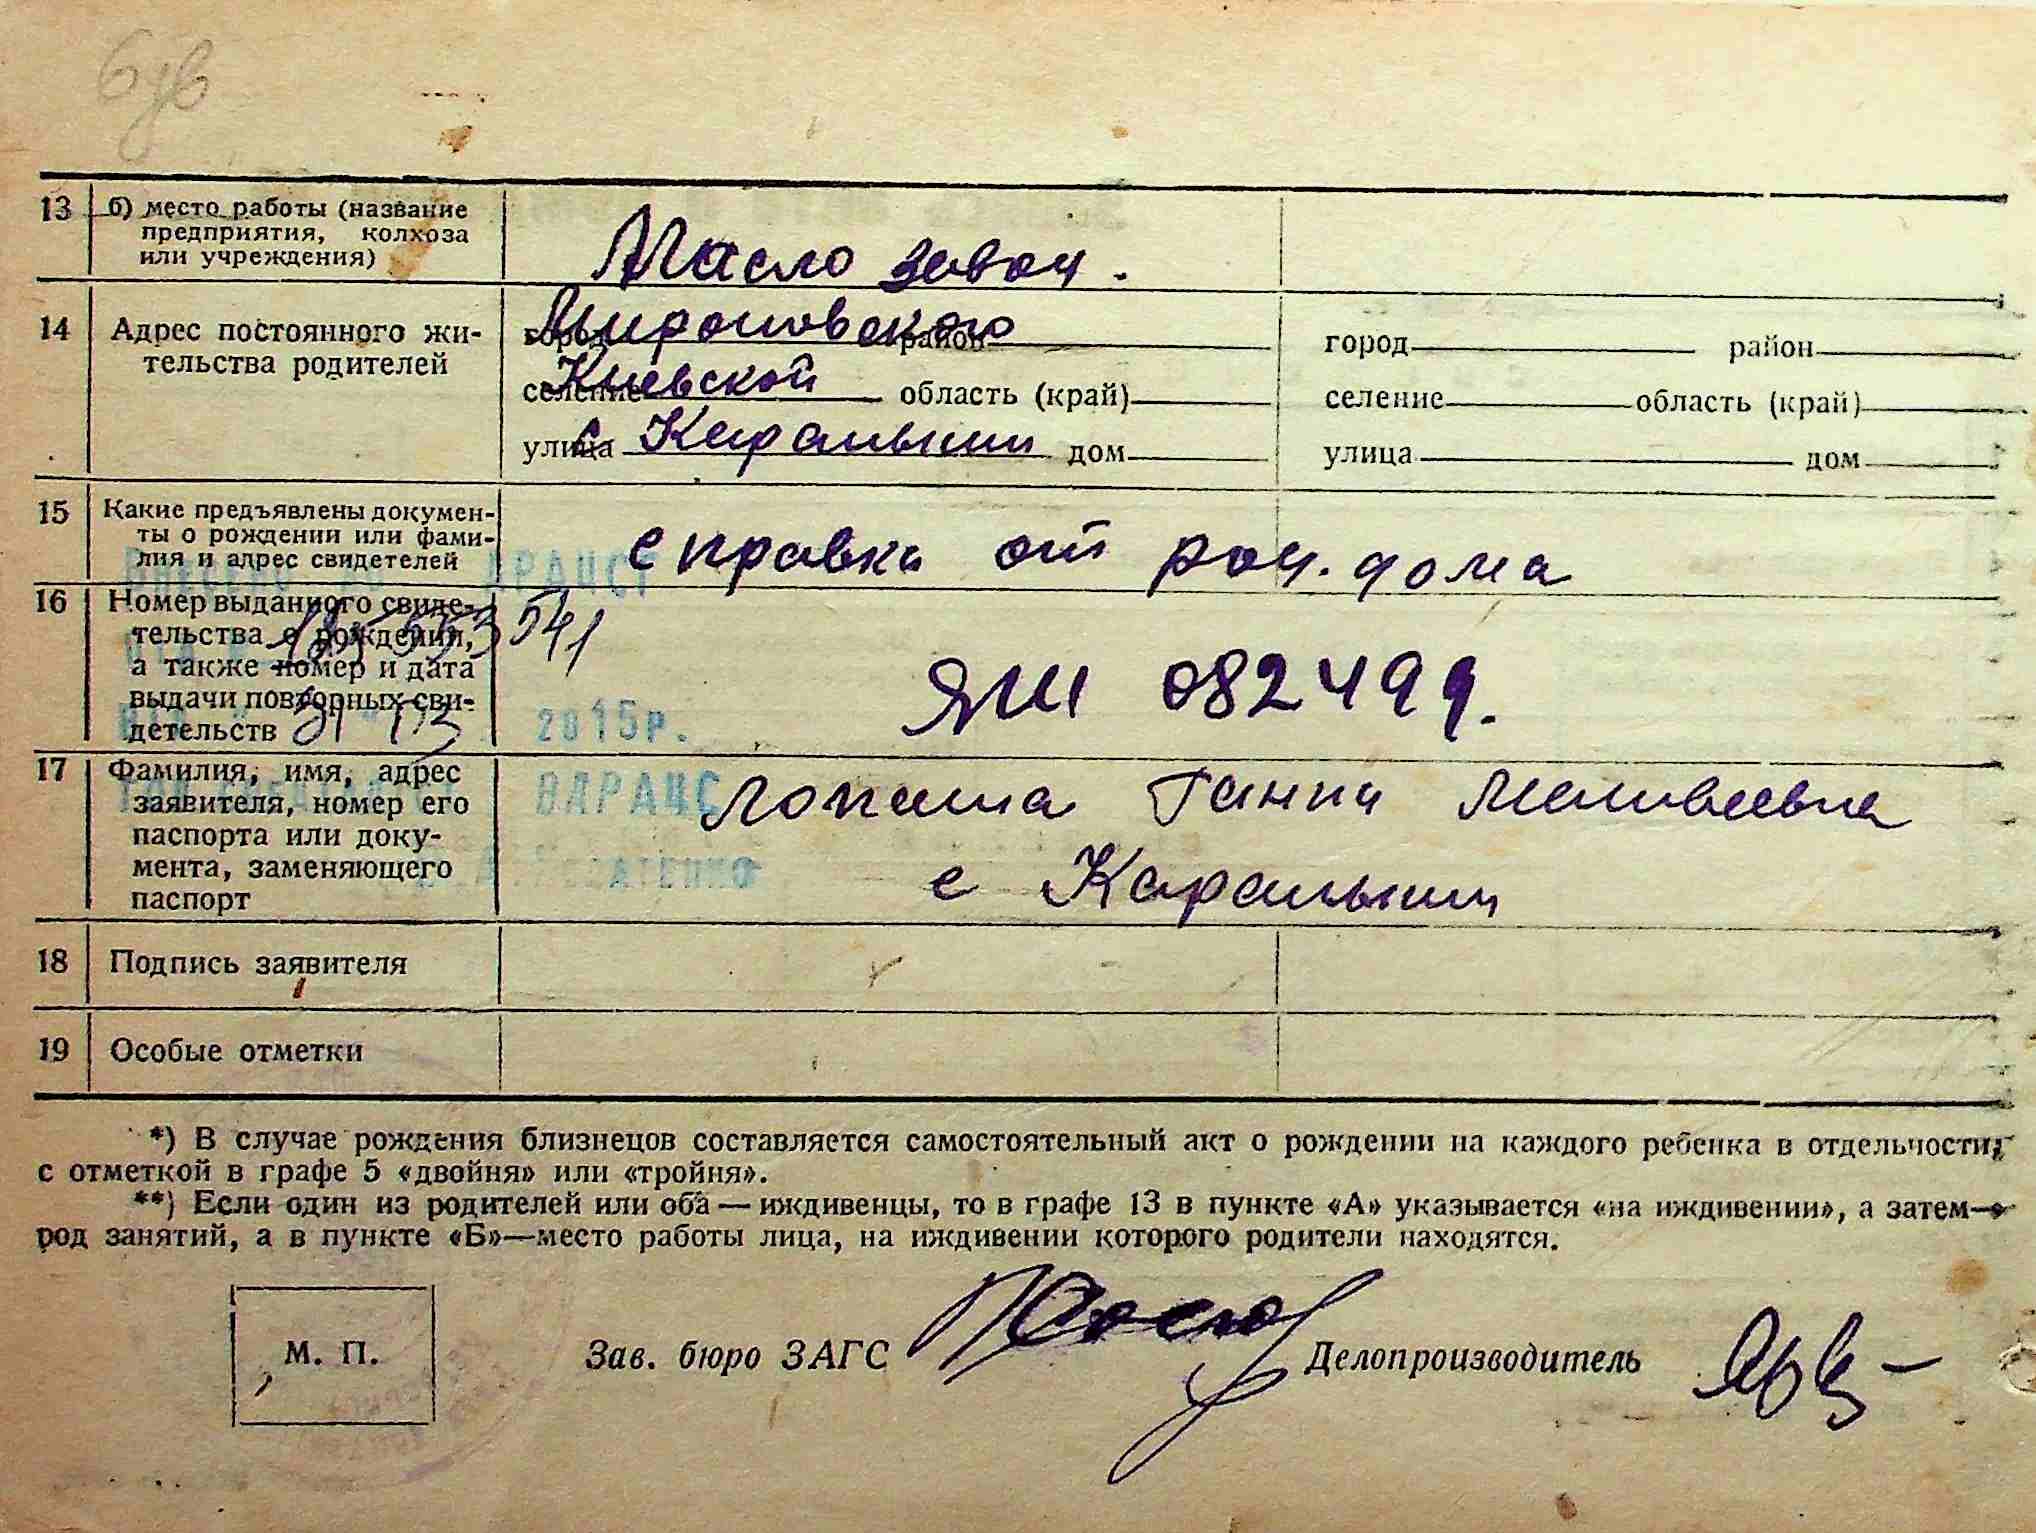 13 б) место работы (название
предприятия, колхоза
или учреждения)
Масло завод.
14 Адрес постоянного жи-
тельства родителей
город Мироновского район
селение Киевской область (край)
улица с Карапыши дом
город район
селение область (край)
улица дом
15 Какие предъявлены докумен-
ты о рождении или фами-
лия и адрес свидетелей
справка от род. дома
16 Номер выданного свиде-
тельства о рождении,
а также номер и дата
выдачи повторных сви-
детельств
553541
2015р.
ЯШ 082499.
17 Фамилия, имя, адрес
заявителя, номер его
паспорта или доку-
мента, заменяющего
паспорт
ВДРАЦС
Ганна Матвеевна
с Карапыши
18 Подпись заявителя
19 Особые отметки
*) В случае рождения близнецов составляется самостоятельный акт о рождении на каждого ребенка в отдельности,
с отметкой в графе 5 «двойня» или «тройня».
**) Если один из родителей или оба — иждивенцы, то в графе 13 в пункте «А» указывается «на иждивении», а затем—
род занятий, а в пункте «Б»—место работы лица, на иждивении которого родители находятся.
М. П.
Зав. бюро ЗАГС
Делопроизводитель